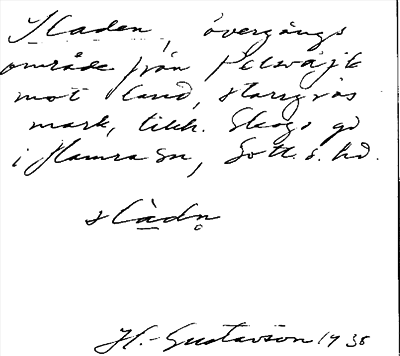 Sladen, övergångs
område från Petsväjk
mot land, starrgräs
mark, tillh. Skogs gd
i Hamra sn, Gotl. s. hd.
slàdn̥
H. Gustavson 1938